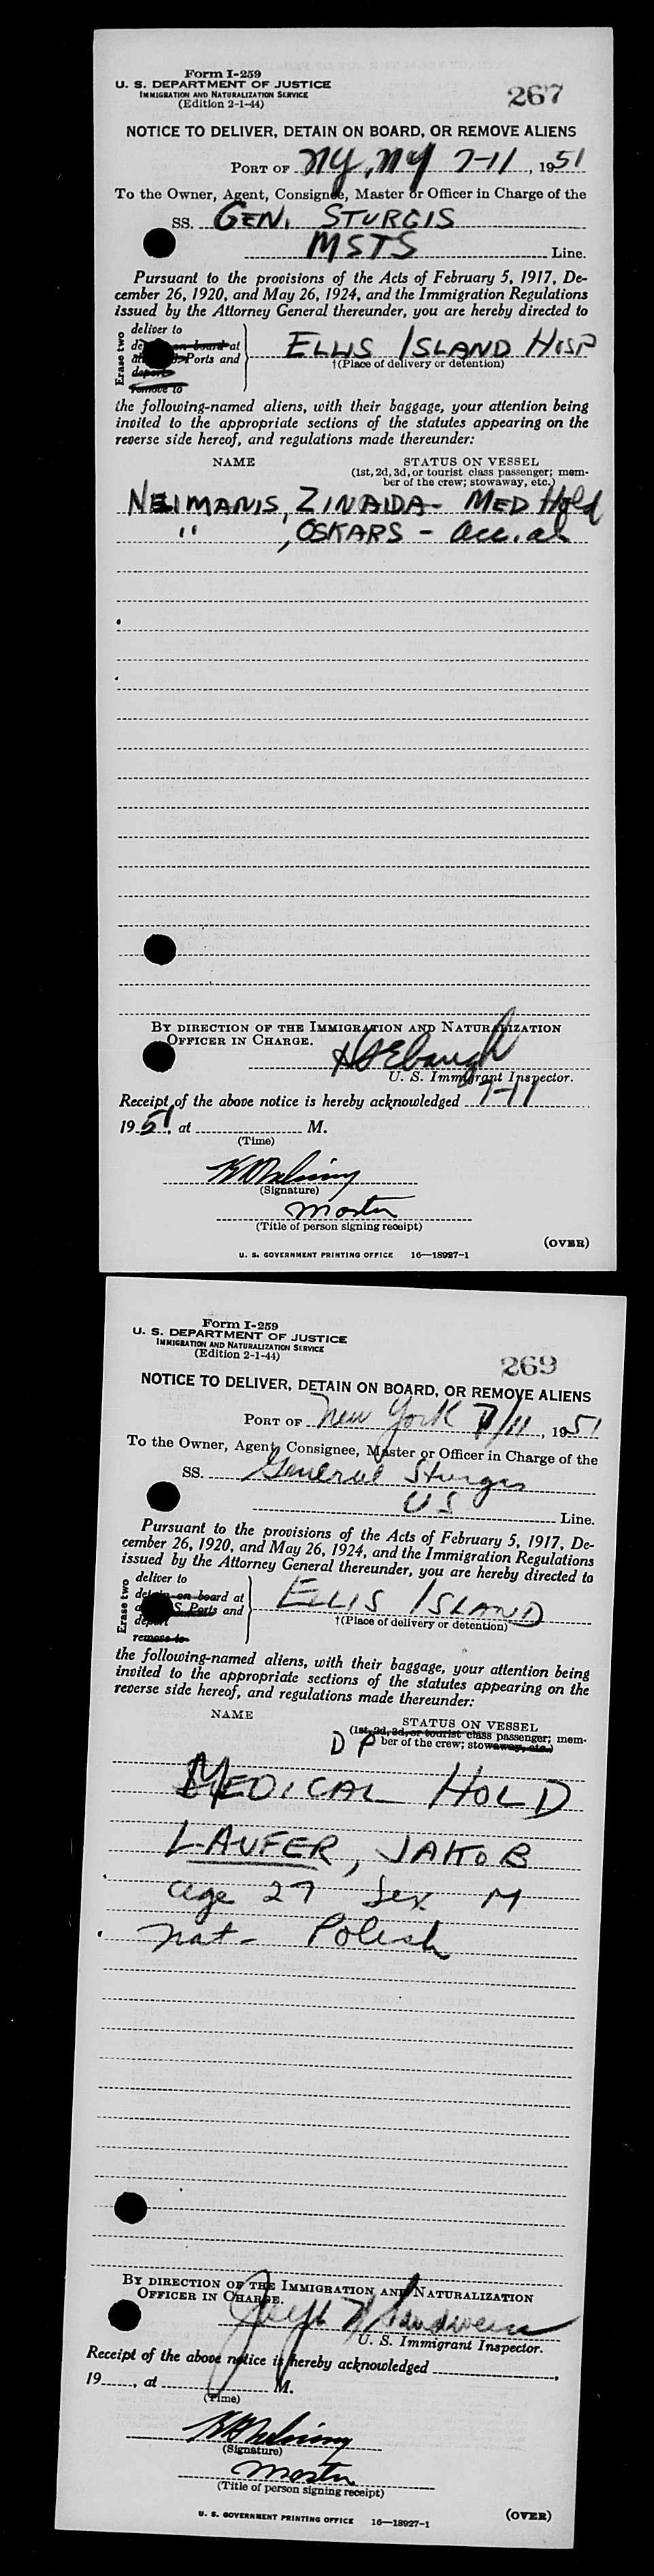 Form I-259
U. S. DEPARTMENT OF JUSTICE
IMMIGRATION AND NATURALIZATION SERVICE
(Edition 2-1-44)
267
NOTICE TO DELIVER, DETAIN ON BOARD, OR REMOVE ALIENS
PORT OF NY, NY 7-11, 1951
To the Owner, Agent, Consignee, Master or Officer in Charge of the
SS. GEN. STURGIS
MSTS Line.
Pursuant to the provisions of the Acts of February 5, 1917, De-
cember 26, 1920, and May 26, 1924, and the Immigration Regulations
issued by the Attorney General thereunder, you are hereby directed to
Erase two
deliver to
on board at
Ports and
deport
remove to
ELLIS ISLAND HOSP
†(Place of delivery or detention)
the following-named aliens, with their baggage, your attention being
invited to the appropriate sections of the statutes appearing on the
reverse side hereof, and regulations made thereunder:
NAME STATUS ON VESSEL
(1st, 2d, 3d, or tourist class passenger; mem-
ber of the crew; stowaway, etc.)
NEIMANIS, ZINAIDA - MED Hold
" , OSKARS - acc. al
BY DIRECTION OF THE IMMIGRATION AND NATURALIZATION
OFFICER IN CHARGE.
U. S. Immigrant Inspector.
Receipt of the above notice is hereby acknowledged 7-11
1951, at M.
(Time)
(Signature)
Master
(Title of person signing receipt)
(OVER)
U. S. GOVERNMENT PRINTING OFFICE 16—18927-1
Form I-259
U. S. DEPARTMENT OF JUSTICE
IMMIGRATION AND NATURALIZATION SERVICE
(Edition 2-1-44)
269
NOTICE TO DELIVER, DETAIN ON BOARD, OR REMOVE ALIENS
PORT OF New York 7/11, 1951
To the Owner, Agent, Consignee, Master or Officer in Charge of the
SS. General Sturgis
US Line.
Pursuant to the provisions of the Acts of February 5, 1917, De-
cember 26, 1920, and May 26, 1924, and the Immigration Regulations
issued by the Attorney General thereunder, you are hereby directed to
Erase two
deliver to
detain on board at
S. Ports and
deport
remove to
ELLIS ISLAND
†(Place of delivery or detention)
the following-named aliens, with their baggage, your attention being
invited to the appropriate sections of the statutes appearing on the
reverse side hereof, and regulations made thereunder:
NAME STATUS ON VESSEL
(1st, 2d, 3d, or tourist class passenger; mem-
DP ber of the crew; stowaway, etc.)
MEDICAL HOLD
LAUFER, JAKOB
age 27 Sex M
Nat- Polish
BY DIRECTION OF THE IMMIGRATION AND NATURALIZATION
OFFICER IN CHARGE.
U. S. Immigrant Inspector.
Receipt of the above notice is hereby acknowledged ,
19 , at M.
(Time)
(Signature)
Master
(Title of person signing receipt)
(OVER)
U. S. GOVERNMENT PRINTING OFFICE 16—18927-1